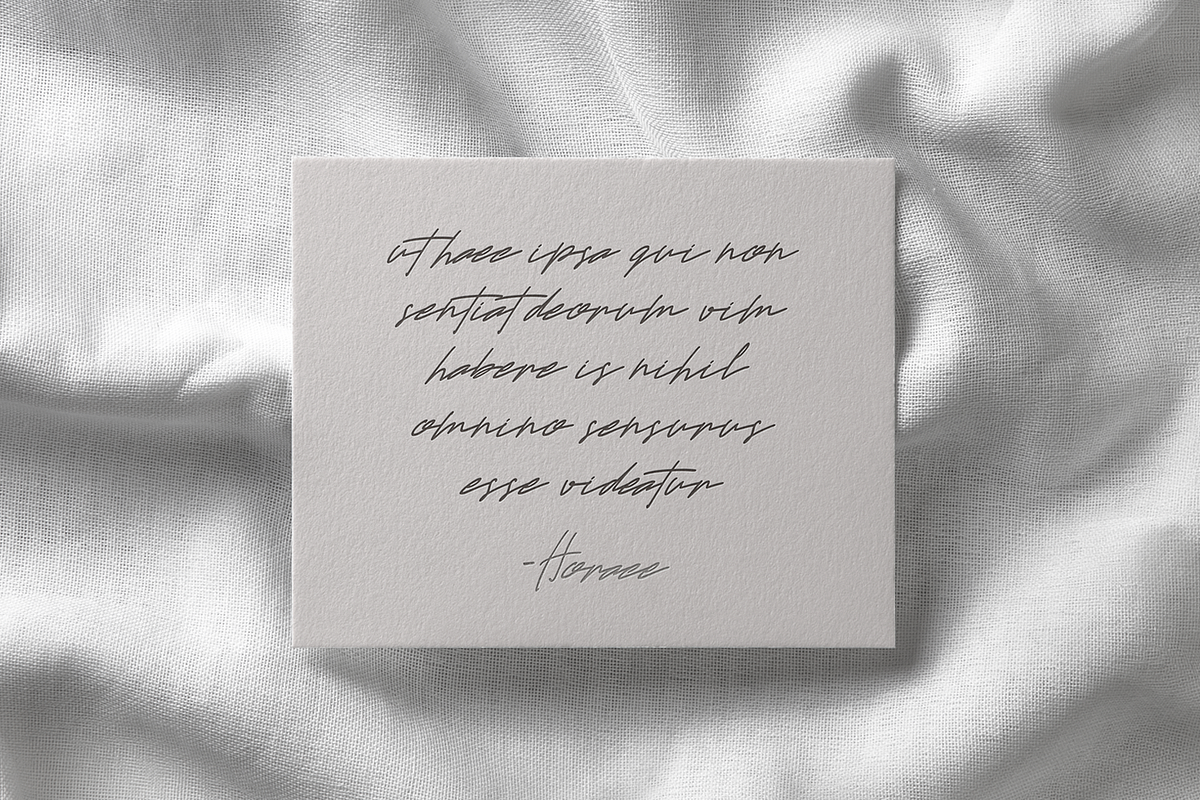 ut haec ipsa qui non
sentiat deorum vim
habere is nihil
omnino sensurus
esse videatur
-Horace